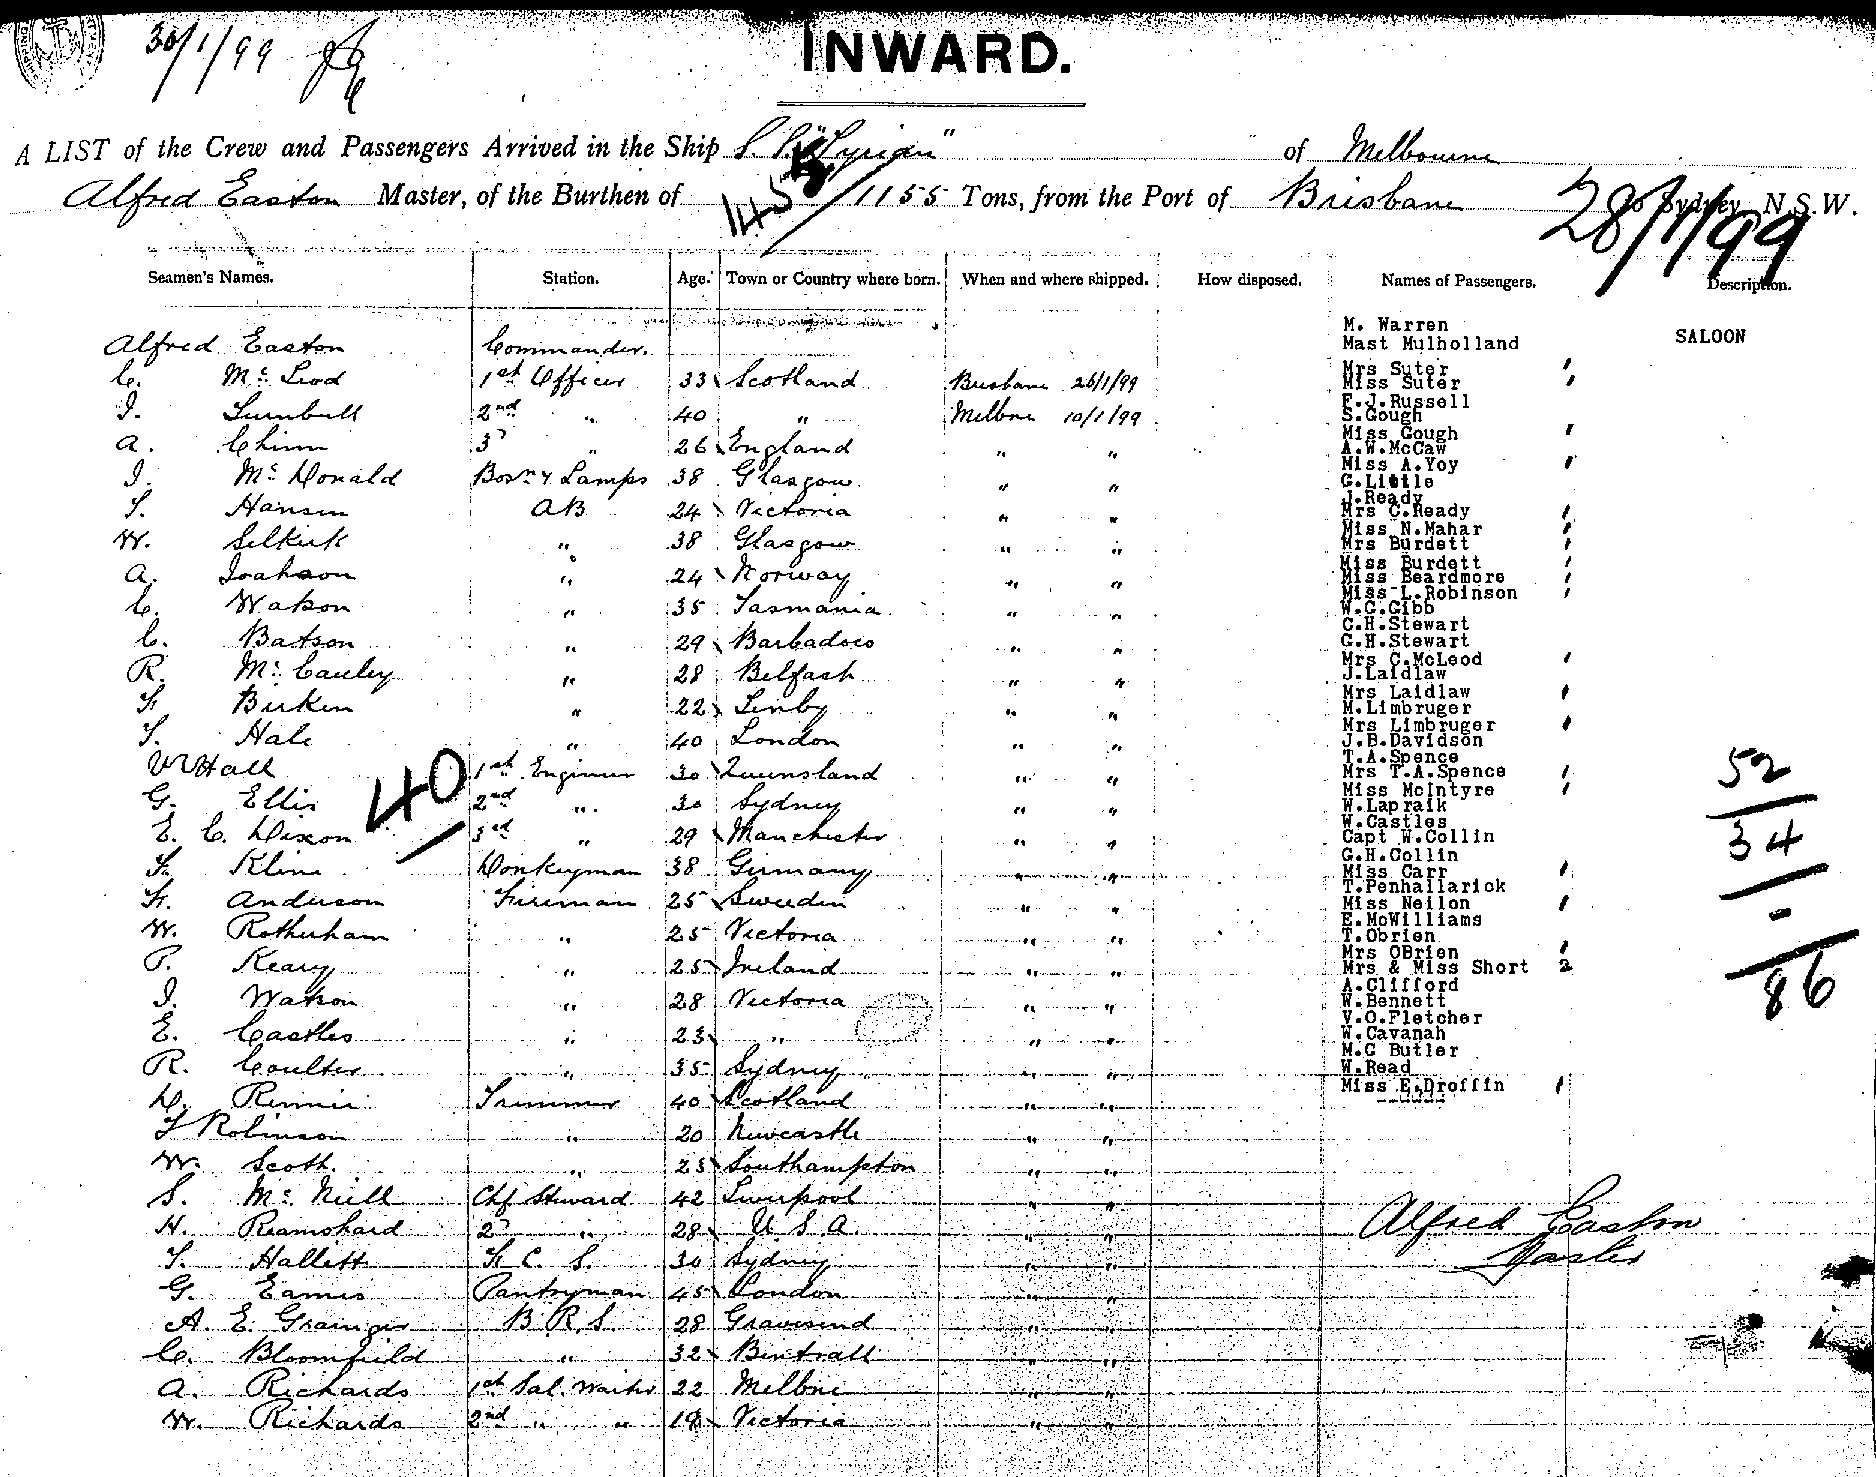 30/1/99
INWARD.
A LIST of the Crew and Passengers Arrived in the Ship S.S. "Tyrian" of Melbourne
Alfred Easton Master, of the Burthen of 1155 Tons, from the Port of Brisbane to Sydney N.S.W.
145
28/1/99
Seamen's Names. Station. Age. Town or Country where born. When and where shipped. How disposed. Names of Passengers. Description.
Alfred Easton Commander.
C. McLeod 1st Officer 33 Scotland Brisbane 26/1/99
J. Turnbull 2nd " 40 " Melbne 10/1/99
A. Chinn 3d " 26 England " "
J. McDonald Bosn & Lamps 38 Glasgow " "
T. Hansen AB 24 Victoria " "
W. Selkirk " 38 Glasgow " "
A. " 24 Norway " "
C. Watson " 35 Tasmania " "
C. Batson " 29 Barbadoes " "
R. McCauley " 28 Belfast " "
F. Birken " 22 " "
T. Hale " 40 London " "
W Hall 1st Engineer 30 Queensland " "
G. Ellis 2nd " 30 Sydney " "
E. C. Dixon 3rd " 29 Manchester " "
F. Kline Donkeyman 38 Germany " "
F. Anderson Fireman 25 Sweeden " "
W. Rotherham " 25 Victoria " "
P. Keary " 25 Ireland " "
J. Watson " 28 Victoria " "
E. Castles " 23 " " "
R. Coulter " 35 Sydney " "
D. Rennie Trimmer 40 Scotland " "
T Robinson " 20 Newcastle " "
W. Scott. " 23 Southampton " "
S. McNeill Chf Steward 42 Liverpool " "
H. 2d " 28 U.S.A. " "
T. Hallett F. C. S. 30 Sydney " "
G. Eames Pantryman 45 London " "
A. E. Grainger B.R.S. 28 Gravesend " "
C. Bloomfield " 32 " "
A. Richards 1st Sal. Waiter 22 Melbne " "
W. Richards 2nd " " 18 Victoria " "
40
M. Warren
Mast Mulholland SALOON
Mrs Suter
Miss Suter
F.J.Russell
S.Gough
Miss Gough
A.W.McCaw
Miss A.Yoy
G.Little
J.Ready
Mrs C.Ready
Miss N.Mahar
Mrs Burdett
Miss Burdett
Miss Beardmore
Miss L.Robinson
W.G.Gibb
C.H.Stewart
G.H.Stewart
Mrs C.McLeod
J.Laidlaw
Mrs Laidlaw
M.Limbruger
Mrs Limbruger
J.B.Davidson
T.A.Spence
Mrs T.A.Spence
Miss McIntyre
W.Lapraik
W.Castles
Capt W.Collin
G.H.Collin
Miss Carr
T.Penhallarick
Miss Neilon
E.McWilliams
T.Obrien
Mrs OBrien
Mrs & Miss Short 2
A.Clifford
W.Bennett
V.O.Fletcher
W.Cavanah
M.C Butler
W.Read
Miss E.Droffin
52
34
-
86
Alfred Easton
Master